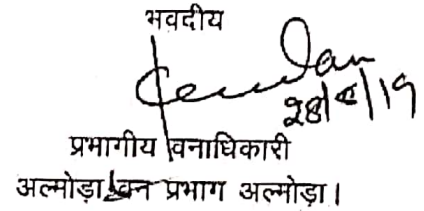 भवदीय
28/
/19
प्रभागीय वनाधिकारी
अल्मोड़ा वन प्रभाग अल्मोड़ा।